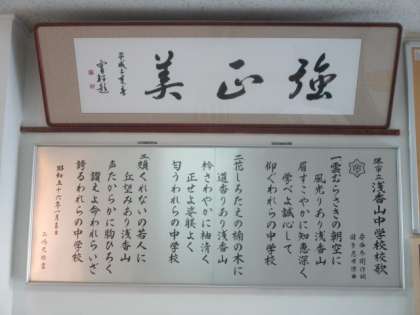 強正美
堺市立 浅香山中学校校歌
一雲むらさきの朝空に
風光りあり浅香山
眉すこやかに知恵深く
学べよ誠心して
仰ぐわれらの中学校
二花しろたえの楠の木に
道香りあり浅香山
衿さわやかに袖清く
正せよ姿軽よく
匂うわれらの中学校
三頬くれないの若人に
丘望みあり浅香山
声たからかに胸ひろく
讃えよ命われらいざ
誇るわれらの中学校
昭和五十六年八月